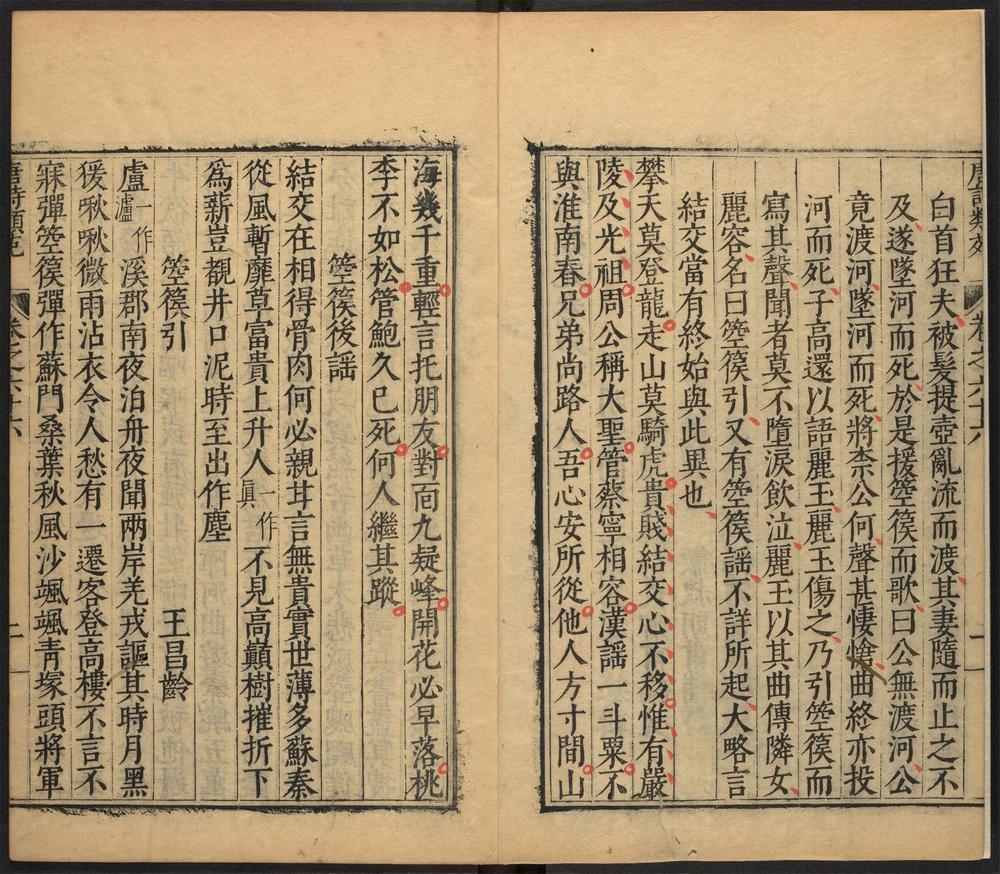 白首狂夫被髮提壺亂流而渡其妻隨而止之不
及遂墜河而死於是援箜篌而歌曰公無渡河公
竟渡河墜河而死將柰公何聲甚悽愴曲終亦投
河而死子高還以語麗玉麗玉傷之乃引箜篌而
寫其聲聞者莫不墮淚飲泣麗玉以其曲傳隣女
麗容名曰箜篌引又有箜篌謡不詳所起大略言
結交當有終始與此異也
攀天莫登龍走山莫騎虎貴賤結交心不移惟有嚴
陵及光祖周公稱大聖管蔡寧相容漢謡一斗粟不
與淮南春兄弟尚路人吾心安所從他人方寸間山
海幾千重輕言托朋友對面九疑峰開花必早落桃
李不如松管鮑久已死何人繼其蹤
箜篌後謡
結交在相得骨肉何必親甘言無貴實世薄多蘇秦
從風暫靡草富貴上升人一作眞不見高顛樹摧折下
爲薪豈覩井口泥時至出作塵
箜篌引 王昌齡
盧一作瀘溪郡南夜泊舟夜聞兩岸羌戎謳其時月黑
猨啾啾微雨沾衣令人愁有一遷客登高樓不言不
寐彈箜篌彈作蘇門桑葉秋風沙颯颯靑塚頭將軍
唐詩類苑 卷之六十六 二